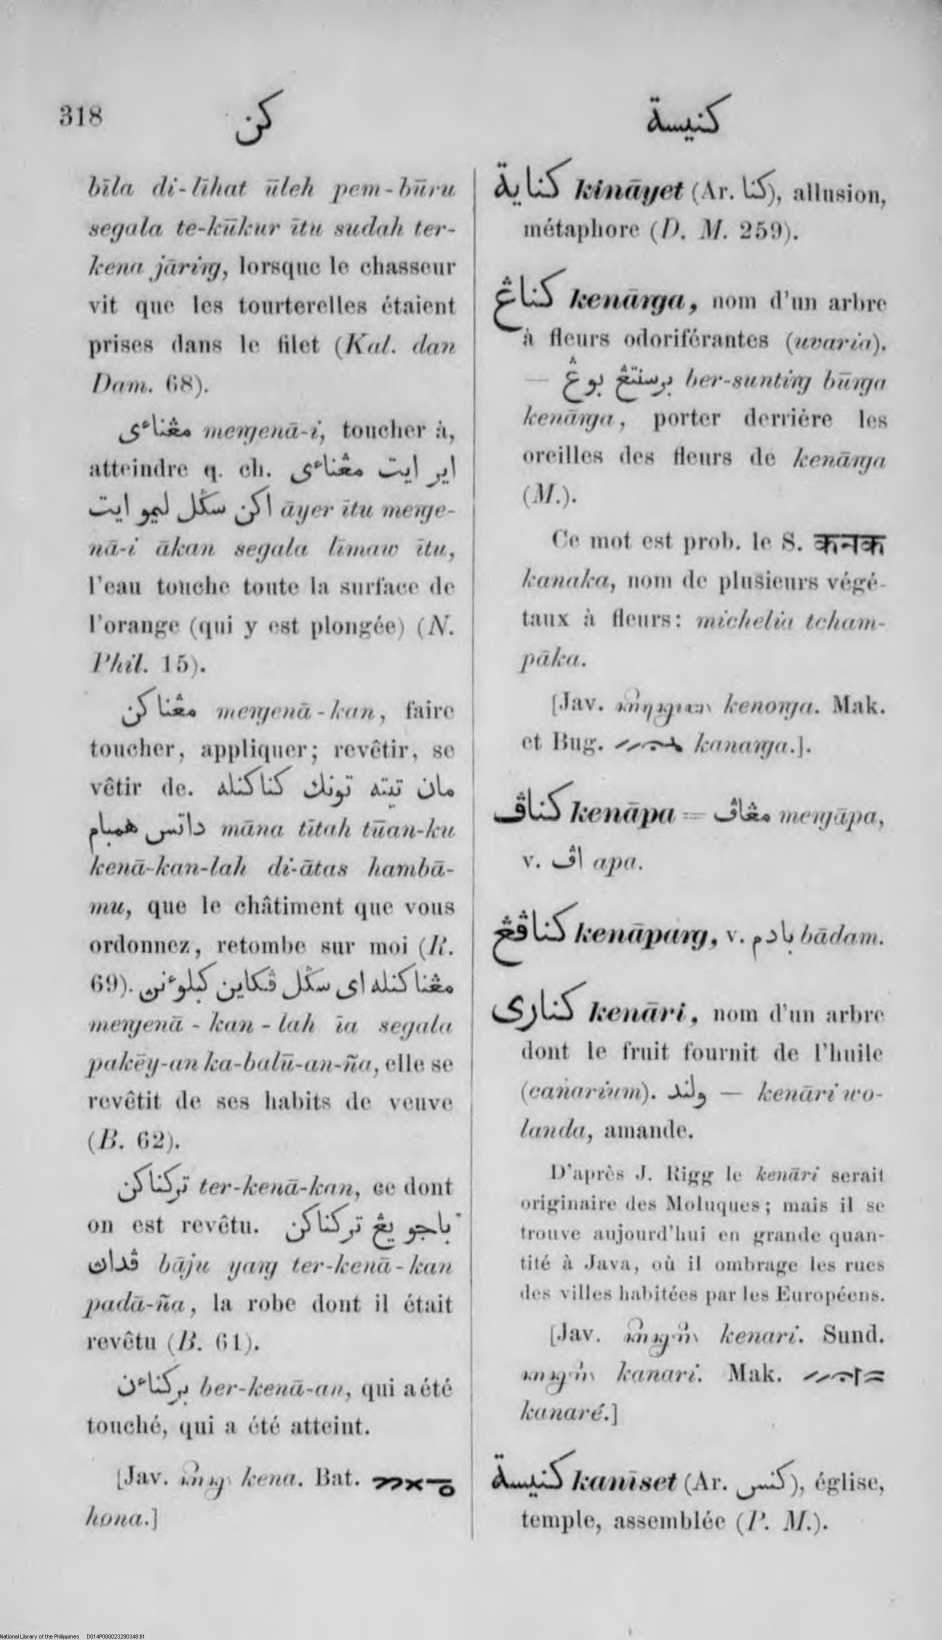 318
كن
كنيسة
bīla di-līhat ūleh pem-būru
segala te-kūkur ītu sudah ter-
kena jāriŋg, lorsque le chasseur
vit que les tourterelles étaient
prises dans le filet (Kal. dan
Dam. 68).
مڠناءى meŋgenā-i, toucher à,
atteindre q. ch. اير ايت مڠناءى
اكن سڬل ليمو ايت āyer ītu meŋge-
nā-i ākan segala līmaw ītu,
l'eau touche toute la surface de
l'orange (qui y est plongée) (N.
Phil. 15).
مڠناكن meŋgenā-kan, faire
toucher, appliquer; revêtir, se
vêtir de. مان تيته تونك كناكنله
داتس همبامو māna tītah tūan-ku
kenā-kan-lah di-ātas hambā-
mu, que le châtiment que vous
ordonnez, retombe sur moi (R.
69). مڠناكنله اى سڬل ڤكاين كبلوءنن
meŋgenā-kan-lah īa segala
pakēy-an ka-balū-an-ña, elle se
revêtit de ses habits de veuve
(B. 62).
تركناكن ter-kenā-kan, ce dont
on est revêtu. باجو يڠ تركناكن
ڤدان bāju yaŋg ter-kenā-kan
padā-ña, la robe dont il était
revêtu (B. 61).
بركناءن ber-kenā-an, qui a été
touché, qui a été atteint.
[Jav. kena. Bat.
hona.]
كناية kināyet (Ar. كنا), allusion,
métaphore (D. M. 259).
كناڠ kenāŋga, nom d'un arbre
à fleurs odoriférantes (uvaria).
— برسنتڠ بوڠ ber-suntiŋg būŋga
kenāŋga, porter derrière les
oreilles des fleurs de kenāŋga
(M.).
Ce mot est prob. le S. कनक
kanaka, nom de plusieurs végé-
taux à fleurs: michelia tcham-
pāka.
[Jav. kenoŋga. Mak.
et Bug. kanaŋga.].
كناڤ kenāpa = مڠاڤ meŋgāpa,
v. اڤ apa.
كناڤڠ kenāpaŋg, v. بادم bādam.
كنارى kenāri, nom d'un arbre
dont le fruit fournit de l'huile
(canarium). ولند — kenāri wo-
landa, amande.
D'après J. Rigg le kenāri serait
originaire des Moluques; mais il se
trouve aujourd'hui en grande quan-
tité à Java, où il ombrage les rues
des villes habitées par les Européens.
[Jav. kenari. Sund.
kanari. Mak.
kanaré.]
كنيسة kanīset (Ar. كنس), église,
temple, assemblée (P. M.).
National Library of the Philippines